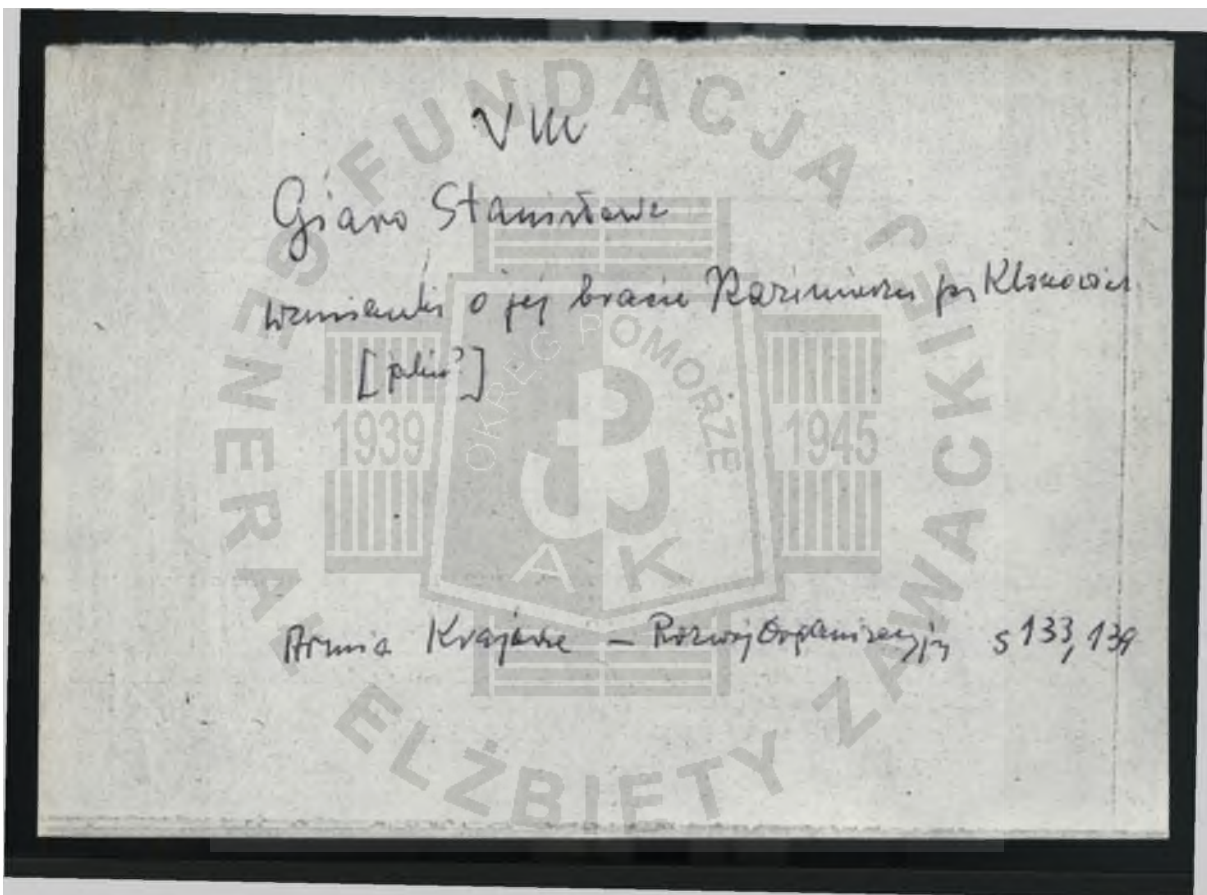 VIII
Giaro Stanisława
wzmianki o jej bracie Kazimierzu ps Klonowicz
Armia Krajowa – Rozwój Organizacyjny s 133, 139
FUNDACJA GENERAŁ ELŻBIETY ZAWACKIEJ
OKRĘG POMORZE
1939
1945
AK